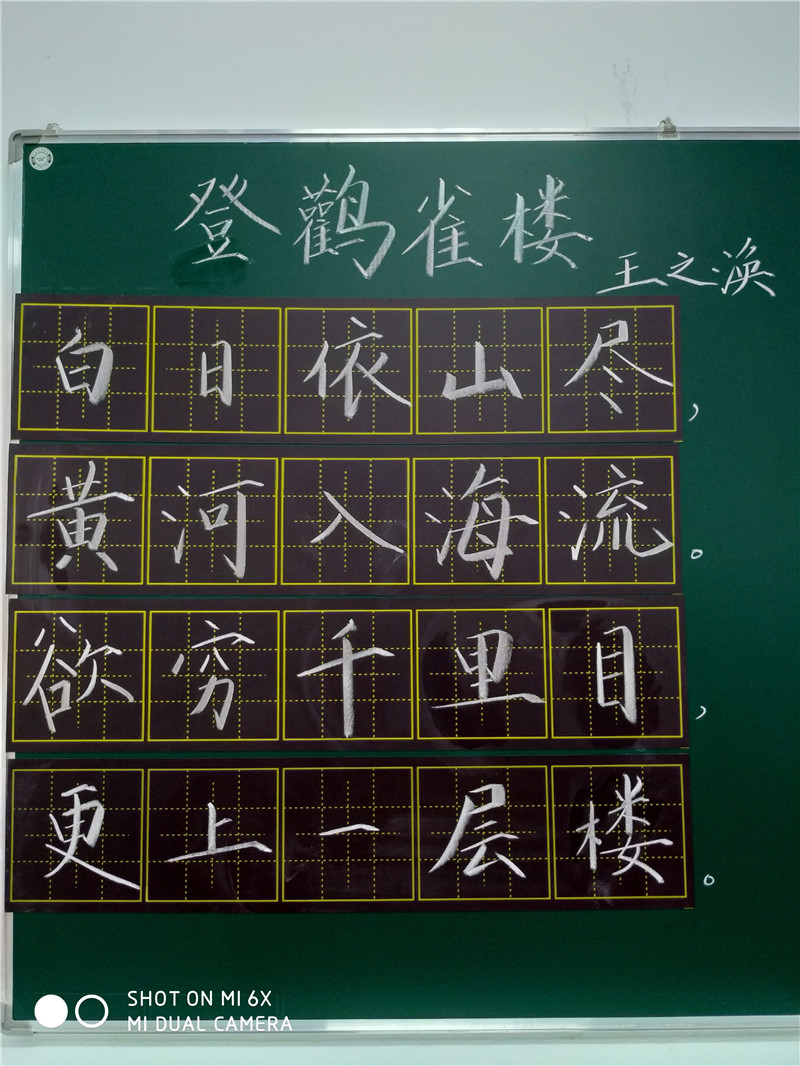 登鹳雀楼
王之涣
白日依山尽，
黄河入海流。
欲穷千里目，
更上一层楼。
SHOT ON MI 6X
MI DUAL CAMERA